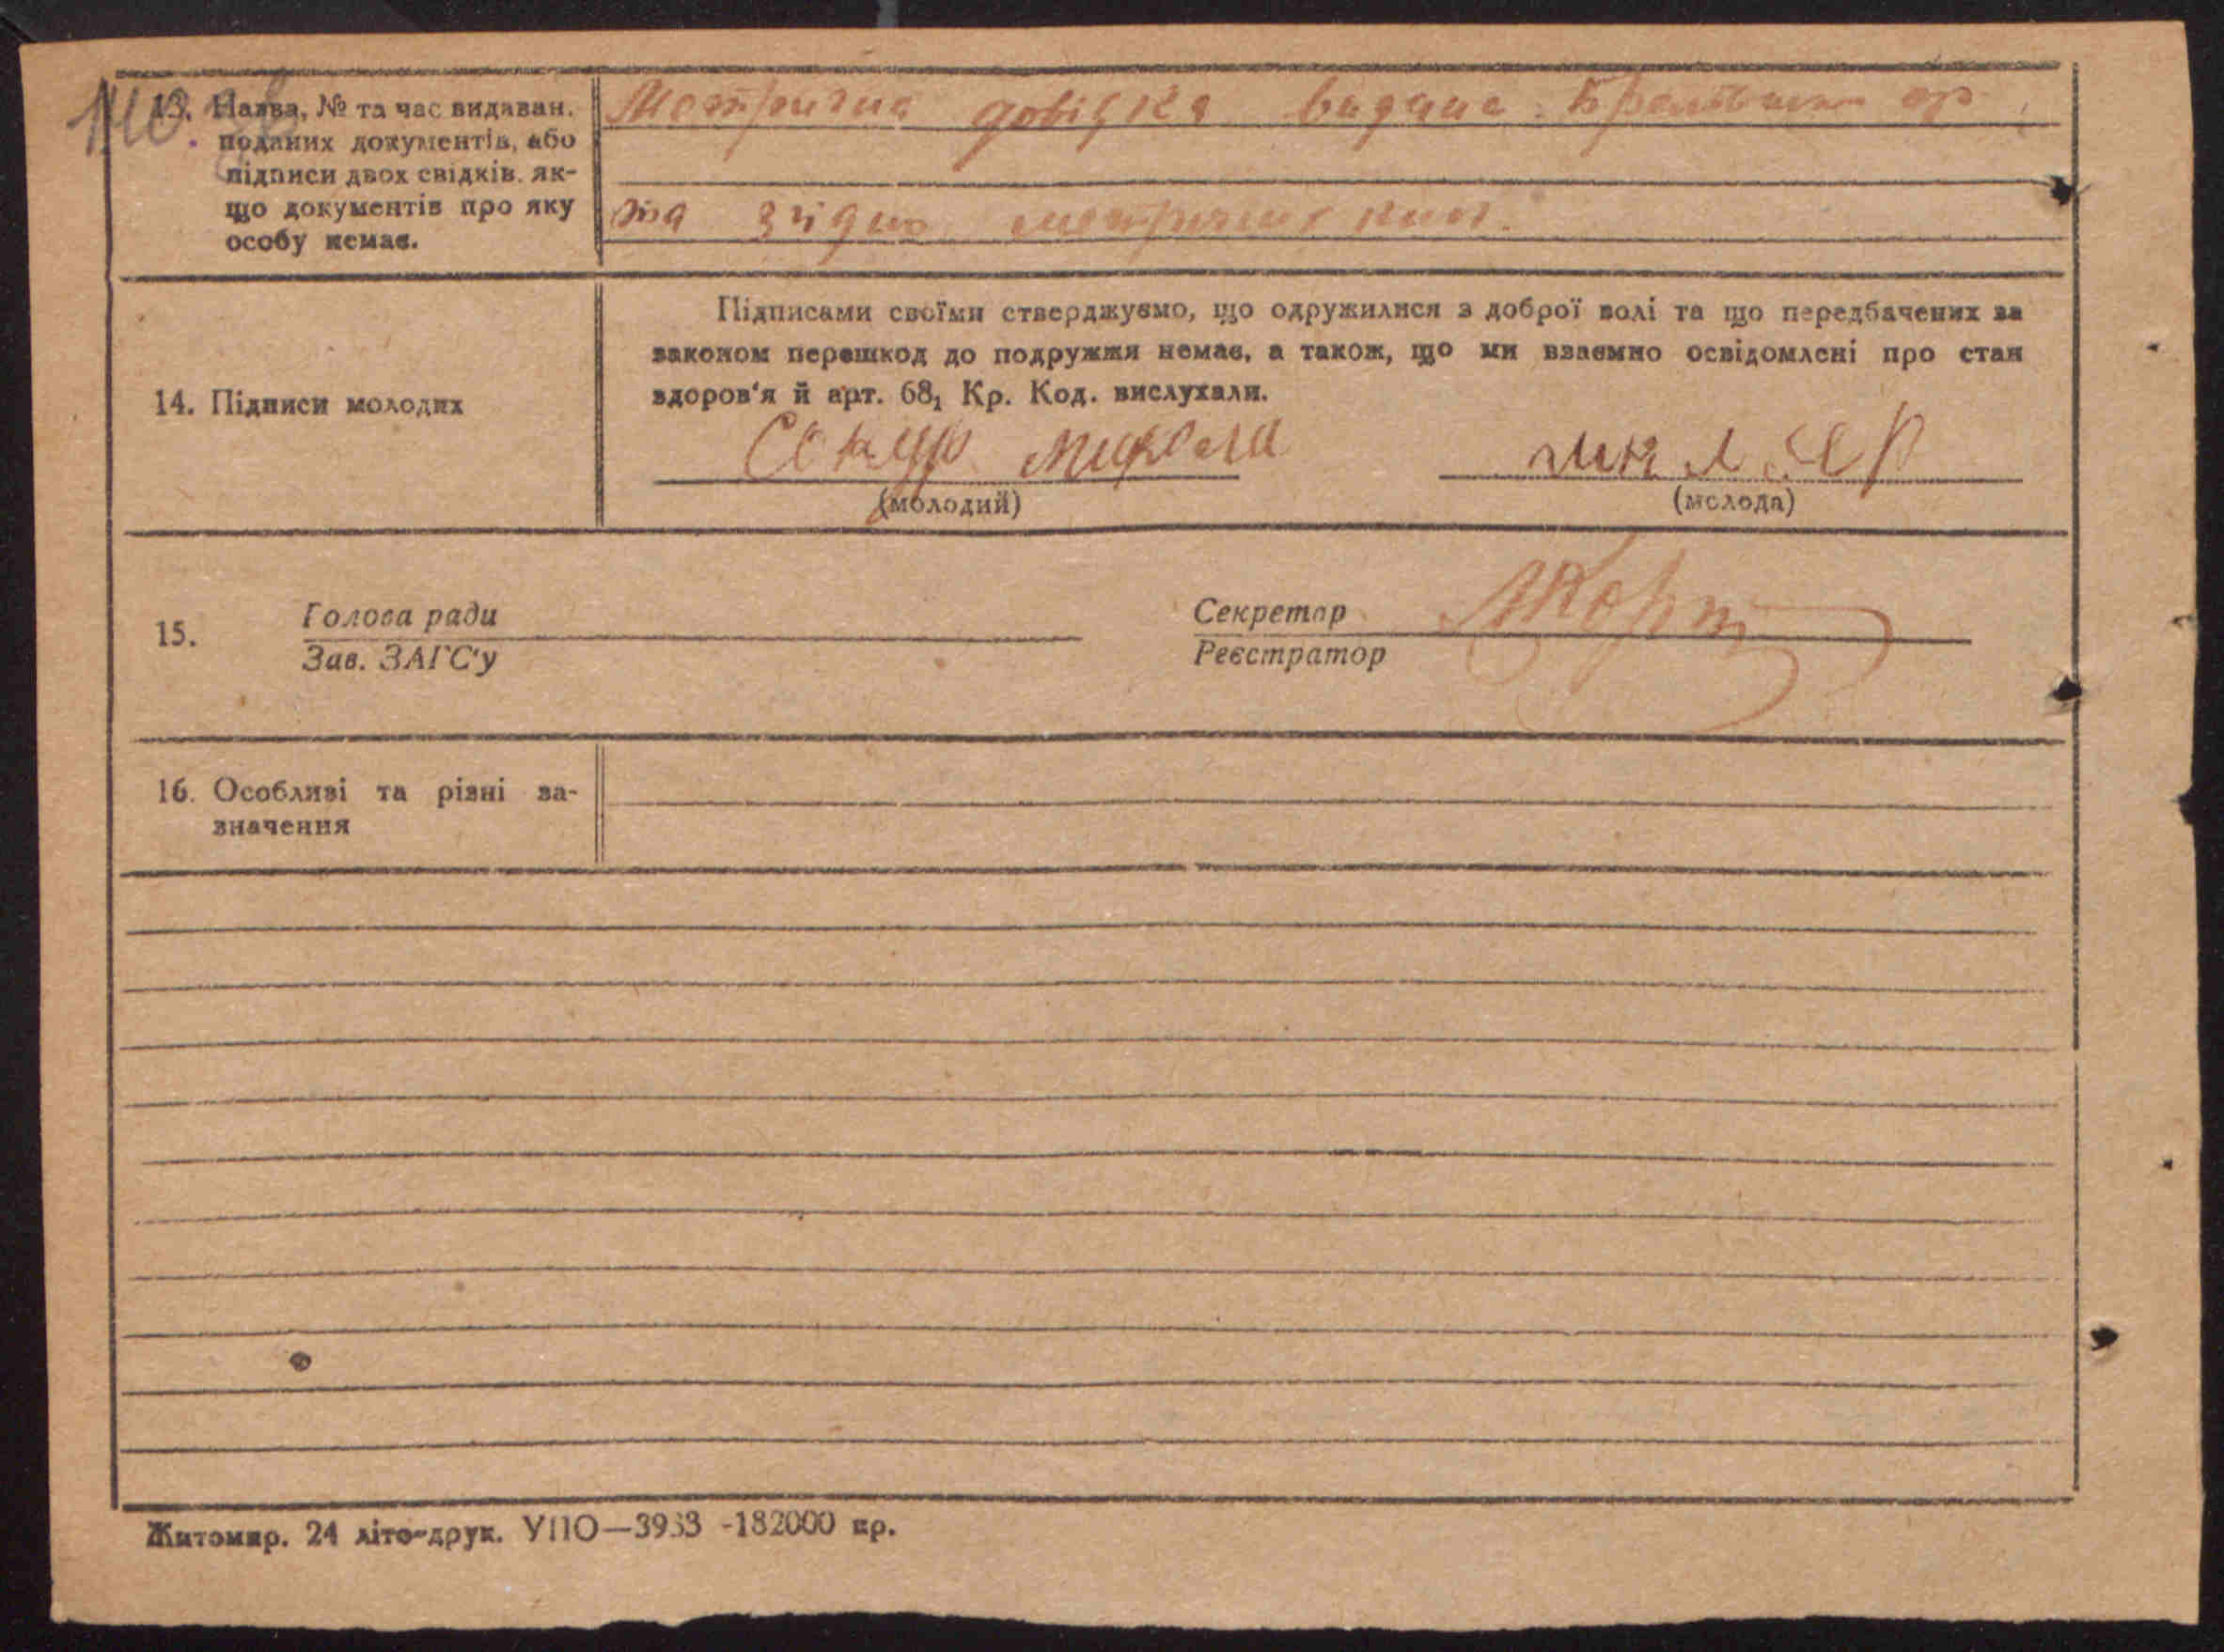 13. Назва, № та час видаван.
поданих документів, або
підписи двох свідків. як-
що документів про яку
особу немає.
Метрична довідка видана
та згідно метричних книг.
14. Підписи молодих
Підписами своїми стверджуємо, що одружилися з доброї волі та що передбачених за
законом перешкод до подружжя немає, а також, що ми взаємно освідомлені про стан
здоров'я й арт. 68₁ Кр. Код. вислухали.
Микола
(молодий)
(молода)
15.
Голова ради
Зав. ЗАГС'у
Секретар
Реєстратор
16. Особливі та різні за-
значення
Житомир. 24 літо-друк. УПО—3933 -182000 пр.